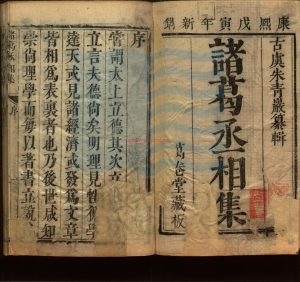 康熙戊寅年新鐫
古虞朱青巖纂輯
諸葛丞相集
萬卷堂藏板
序
嘗謂太上立德其次立
立言夫德尚矣明理見性爲學
達天或見諸經濟或發爲文章
皆相爲表裏者也乃後世咸知
崇尚理學而每以著書立說
序